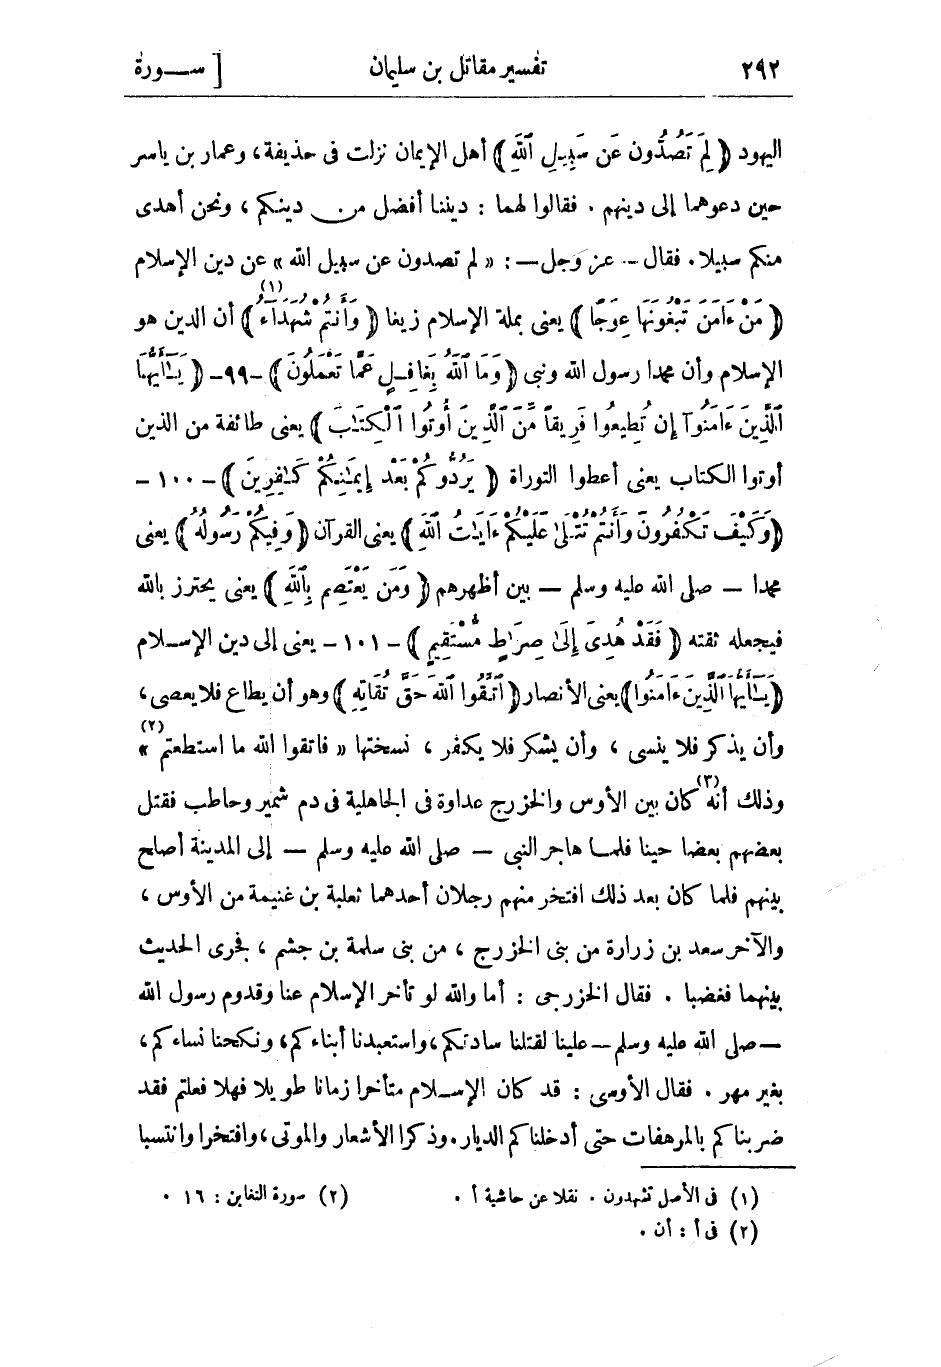 ٢٩٢ تفسير مقاتل بن سليمان [ ســورة
اليهود ﴿ لِمَ تَصُدُّونَ عَن سَبِيلِ ٱللَّهِ ﴾ أهل الإيمان نزلت فى حذيفة، وعمار بن ياسر
حين دعوهما إلى دينهم . فقالوا لهما : ديننا أفضل من دينكم ، ونحن أهدى
منكم سبيلا. فقال – عز وجل – : « لم تصدون عن سبيل الله » عن دين الإسلام
﴿ مَنْ ءَامَنَ تَبْغُونَهَا عِوَجًا ﴾ يعنى بملة الإسلام زيغا ﴿ وَأَنتُمْ شُهَدَآءُ (١) ﴾ أن الدين هو
الإسلام وأن محمدا رسول الله ونبى ﴿ وَمَا ٱللَّهُ بِغَافِـلٍ عَمَّا تَعْمَلُونَ ﴾ -٩٩- ﴿ يَـٰٓأَيُّهَا
ٱلَّذِينَ ءَامَنُوٓا إِن تُطِيعُوا فَرِيقًا مِّنَ ٱلَّذِينَ أُوتُوا ٱلْكِتَـٰبَ ﴾ يعنى طائفة من الذين
أوتوا الكتاب يعنى أعطوا التوراة ﴿ يَرُدُّوكُمْ بَعْدَ إِيمَـٰنِكُمْ كَـٰفِرِينَ ﴾ - ١٠٠ -
﴿وَكَيْفَ تَكْفُرُونَ وَأَنتُمْ تُتْلَىٰ عَلَيْكُمْ ءَايَـٰتُ ٱللَّهِ ﴾ يعنى القرآن ﴿ وَفِيكُمْ رَسُولُهُ ﴾ يعنى
محمدا – صلى الله عليه وسلم – بين أظهرهم ﴿ وَمَن يَعْتَصِم بِٱللَّهِ ﴾ يعنى يحترز بالله
فيجعله ثقته ﴿ فَقَدْ هُدِىَ إِلَىٰ صِرَٰطٍ مُّسْتَقِيمٍ ﴾ - ١٠١ - يعنى إلى دين الإســلام
﴿يَـٰٓأَيُّهَا ٱلَّذِينَ ءَامَنُوا﴾ يعنى الأنصار ﴿ ٱتَّقُوا ٱللَّهَ حَقَّ تُقَاتِهِ ﴾ وهو أن يطاع فلا يعصى،
وأن يذكر فلا ينسى ، وأن يشكر فلا يكفر ، نسختها « فاتقوا الله ما استطعتم (٢) »
وذلك أنه (٣) كان بين الأوس والخزرج عداوة فى الجاهلية فى دم شمير وحاطب فقتل
بعضهم بعضا حينا فلمــا هاجر النبى – صلى الله عليه وسلم – إلى المدينة أصلح
بينهم فلما كان بعد ذلك افتخر منهم رجلان أحدهما ثعلبة بن غنيمة من الأوس ،
والآخر سعد بن زرارة من بنى الخزرج ، من بنى سلمة بن جشم ، فجرى الحديث
بينهما فغضبا . فقال الخزرجى : أما والله لو تأخر الإسلام عنا وقدوم رسول الله
– صلى الله عليه وسلم – علينا لقتلنا سادتكم، واستعبدنا أبناءكم، ونكحنا نساءكم،
بغير مهر . فقال الأوسى : قد كان الإســلام متأخرا زمانا طويلا فهلا فعلتم فقد
ضربناكم بالمرهفات حتى أدخلناكم الديار. وذكرا الأشعار والموتى، وافتخرا وانتسبا
(١) فى الأصل تشهدون . نقلا عن حاشية أ . (٢) سورة التغابن : ١٦ .
(٢) فى أ : أن .